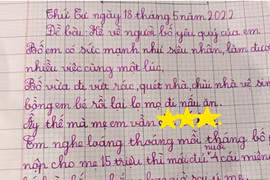 Thứ Tư ngày 18 tháng 5 năm 2022
Đề bài: Kể về người bố yêu quý của em
Bố em có sức mạnh như siêu nhân, làm được
nhiều việc cùng một lúc.
Bố vừa đi vứt rác, quét nhà, chùi nhà vệ sin
bồng em bé rồi lại lo mọi đi nấu ăn.
Ấy thế mà mẹ em vẫn
Em nghe loáng thoáng mỗi tháng bố
nộp cho mẹ 15 triệu thì mới đủ nuôi 4 cái miệng